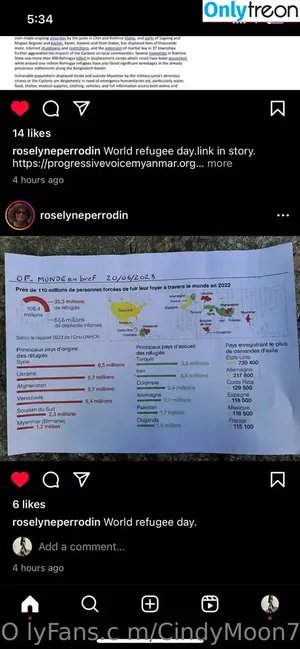 5:34
Onlytreon
man-made ongoing atrocities by the junta in Chin and Rakhine States, and parts of Sagaing and
Magwe Regions and Kachin, Karen, Karenni and Shan States, has displaced tens of thousands
more. Internet shutdowns and restrictions, and the extension of martial law in 37 townships
further aggravated the impacts of the Cyclone on local communities. Several townships in Rakhine
State saw more than 400 Rohingya killed in displacement camps which could have been prevented,
while around one million Rohingya refugees have also faced significant wreckages in the already
precarious settlements along the Bangladesh border.
Vulnerable populations displaced inside and outside Myanmar by the military junta's atrocious
crimes or the Cyclone are desperately in need of emergency humanitarian aid, particularly water,
food, shelter, medical supplies, clothing, vehicles, and full information access both online and
14 likes
roselyneperrodin World refugee day.link in story.
https://progressivevoicemyanmar.org... more
4 hours ago
roselyneperrodin
MONDE en bref 20/06/2023
Près de 110 millions de personnes forcées de fuir leur foyer à travers le monde en 2022
108,4
millions
35,3 millions
de réfugiés
62,5 millions
de déplacés internes
Selon le rapport 2023 de l'Onu-UNHCR
Allemagne
Ukraine
Principaux pays d'origine
des réfugiés
Syrie
6,5 millions
Ukraine
5,7 millions
Afghanistan
5,7 millions
Venezuela
5,4 millions
Soudan du Sud
2,3 millions
Myanmar (Birmanie)
1,2 million
Principaux pays d'accueil
des réfugiés
Turquie
3,6 millions
Iran
3,4 millions
Colombie
2,4 millions
Allemagne
2,1 millions
Pakistan
1,7 million
Ouganda
1,5 million
Pays enregistrant le plus
de demandes d'asile
États-Unis
730 400
Allemagne
217 800
Costa Rica
129 500
Espagne
118 500
Mexique
118 500
France
115 100
6 likes
roselyneperrodin World refugee day.
Add a comment...
4 hours ago
O lyFans.c m/CindyMoon7